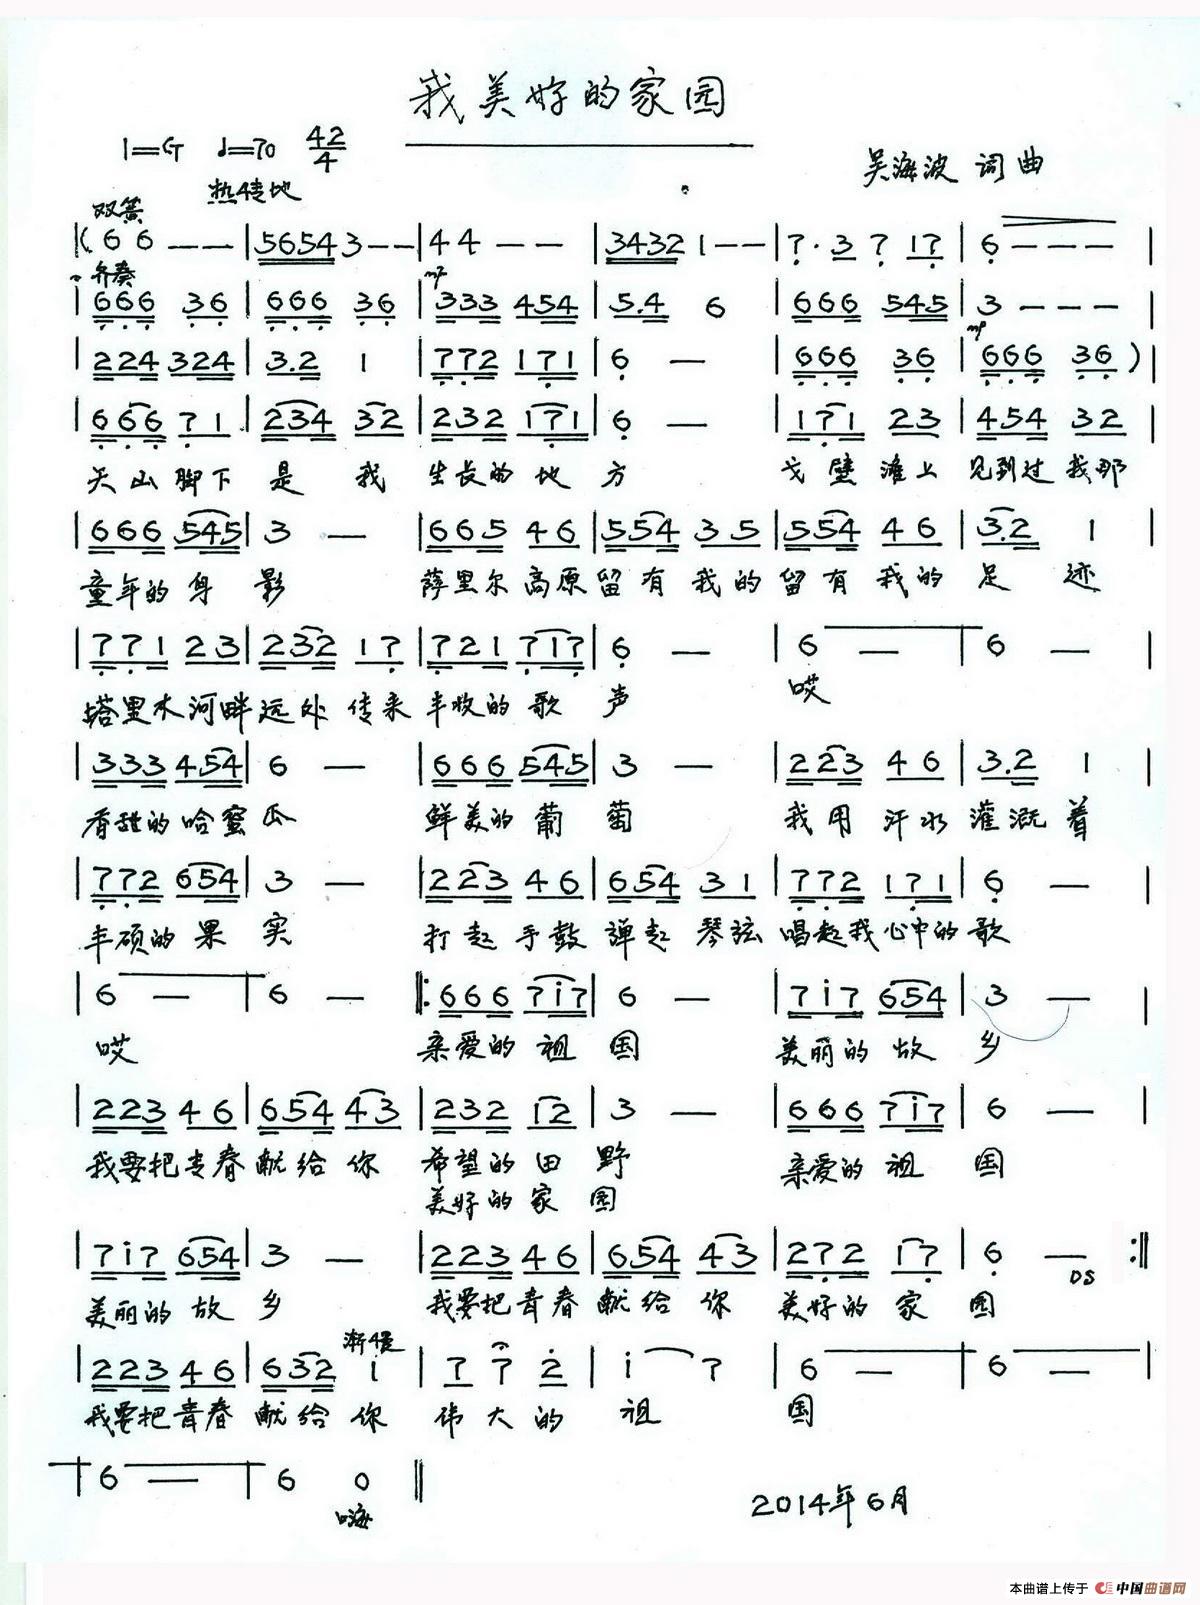 我美好的家园
1=G ♩=70 42/4
热情地
吴海波 词曲
双簧
|(6 6 — — | 5654 3 — — | 4 4 — — | 3432 1 — — | 7· 3 7 17 | 6 — — — |
齐奏 mf
| 666 36 | 666 36 | 333 454 | 5.4 6 | 666 545 | 3 — — — |
mp
| 224 324 | 3.2 1 | 772 171 | 6 — | 666 36 | 666 36 ) |
| 666 71 | 234 32 | 232 171 | 6 — | 171 23 | 454 32 |
天山脚下是我生长的地方 戈壁滩上见到过我那
| 666 545 | 3 — | 665 46 | 554 35 | 554 46 | 3.2 1 |
童年的身影 萨里尔高原留有我的留有我的足迹
| 771 23 | 232 17 | 721 717 | 6 — | 6 — | 6 — |
塔里木河畔远处传来丰收的歌声 哎
| 333 454 | 6 — | 666 545 | 3 — | 223 46 | 3.2 1 |
香甜的哈蜜瓜 鲜美的葡萄 我用汗水灌溉着
| 772 654 | 3 — | 223 46 | 654 31 | 772 171 | 6 — |
丰硕的果实 打起手鼓弹起琴弦唱起我心中的歌
| 6 — | 6 — |: 666 7i7 | 6 — | 7i7 654 | 3 — |
哎 亲爱的祖国 美丽的故乡
| 223 46 | 654 43 | 232 12 | 3 — | 666 7i7 | 6 — |
我要把青春献给你 希望的田野 亲爱的祖国
美好的家园
| 7i7 654 | 3 — | 223 46 | 654 43 | 272 17 | 6 — :||
DS
美丽的故乡 我要把青春献给你 美好的家园
渐慢
| 223 46 | 632 i | 7 7 2 | i 7 | 6 — | 6 — |
我要把青春献给你 伟大的祖国
| 6 — | 6 0 ||
嗨
2014年6月
本曲谱上传于 中国曲谱网